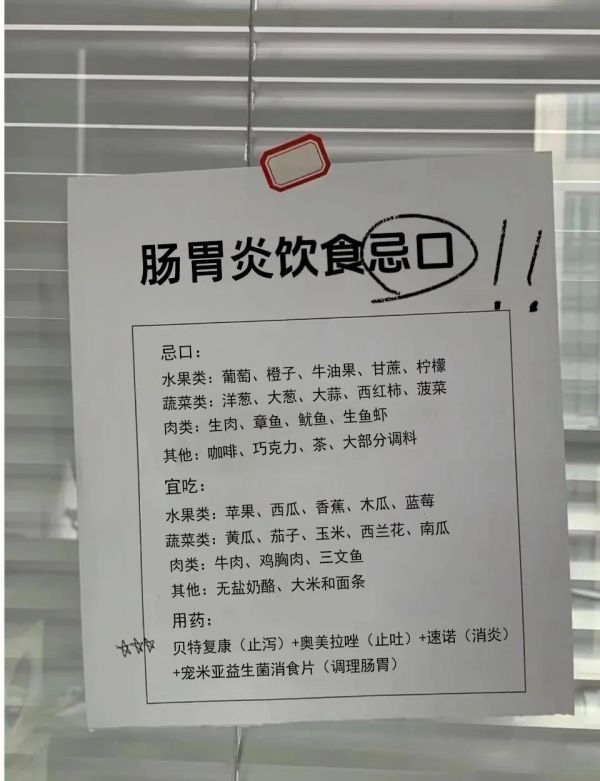 肠胃炎饮食忌口!!
忌口：
水果类：葡萄、橙子、牛油果、甘蔗、柠檬
蔬菜类：洋葱、大葱、大蒜、西红柿、菠菜
肉类：生肉、章鱼、鱿鱼、生鱼虾
其他：咖啡、巧克力、茶、大部分调料
宜吃：
水果类：苹果、西瓜、香蕉、木瓜、蓝莓
蔬菜类：黄瓜、茄子、玉米、西兰花、南瓜
肉类：牛肉、鸡胸肉、三文鱼
其他：无盐奶酪、大米和面条
用药：
贝特复康（止泻）+奥美拉唑（止吐）+速诺（消炎）
+宠米亚益生菌消食片（调理肠胃）